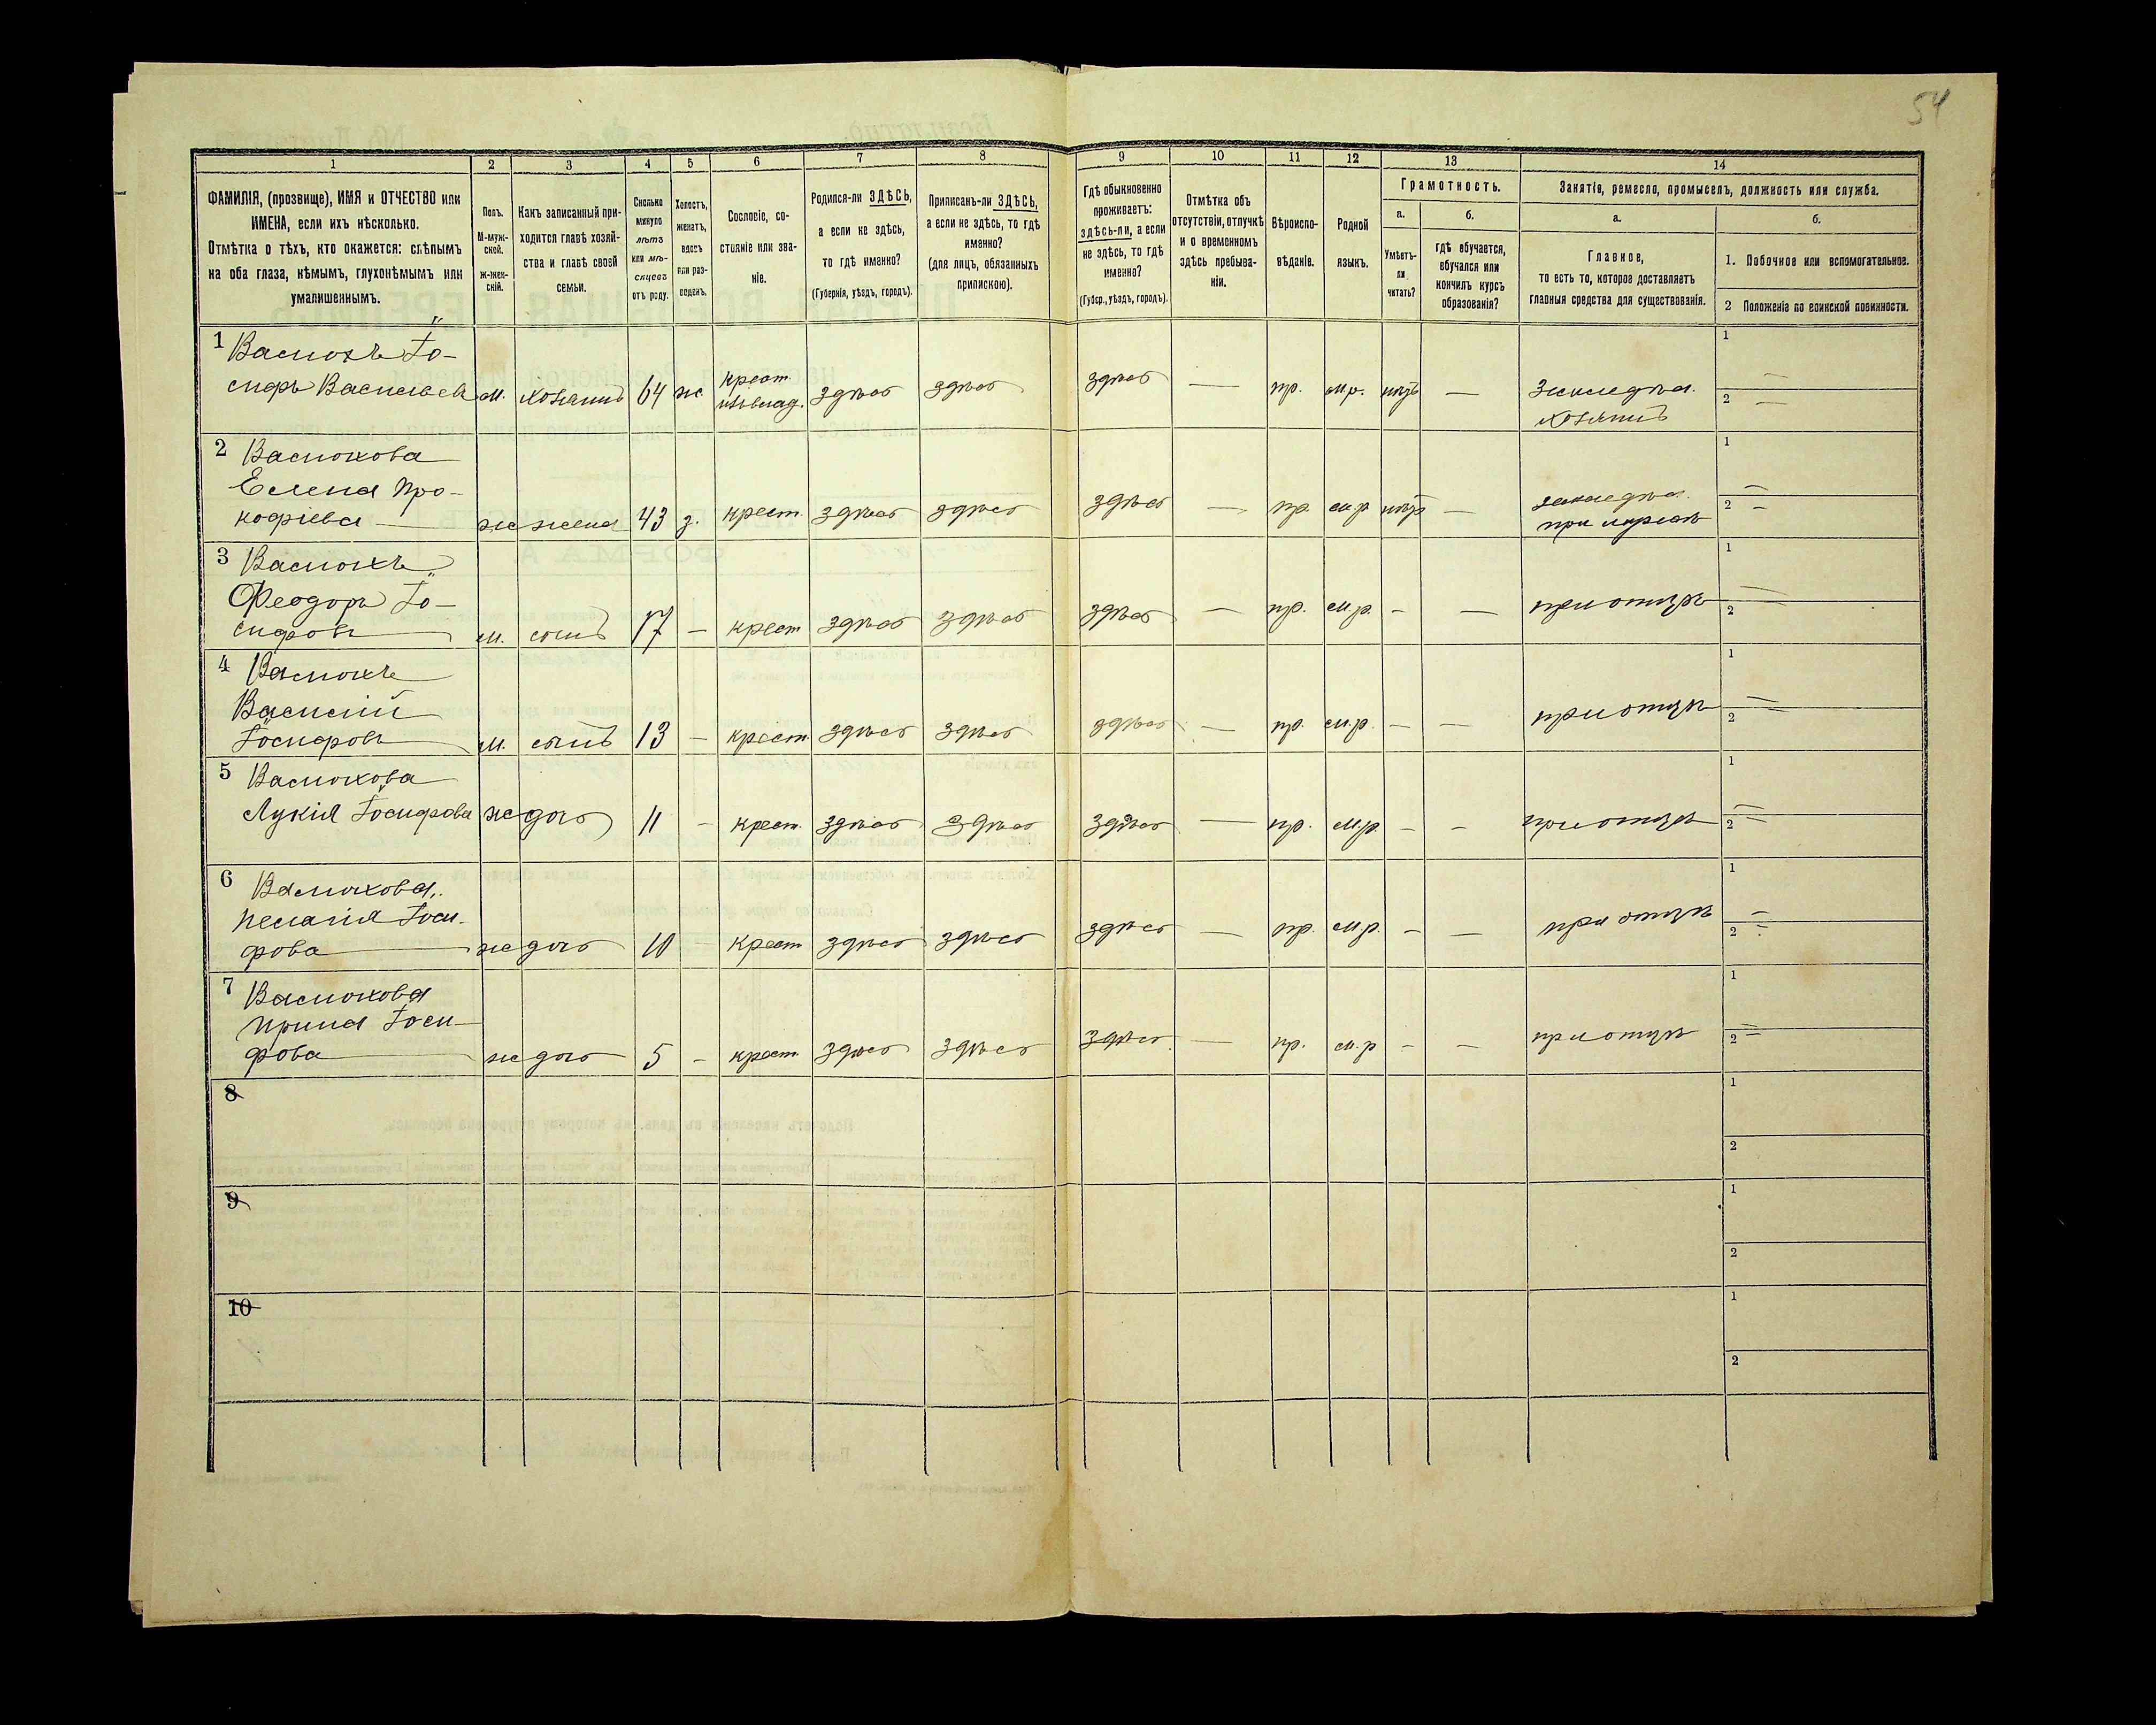 54
1 2 3 4 5 6 7 8 9 10 11 12 13 14
ФАМИЛІЯ, (прозвище), ИМЯ и ОТЧЕСТВО или
ИМЕНА, если ихъ нѣсколько.
Отмѣтка о тѣхъ, кто окажется: слѣпымъ
на оба глаза, нѣмымъ, глухонѣмымъ или
умалишеннымъ.
Полъ.
М-муж-
ской.
ж-жен-
скій.
Какъ записанный при-
ходится главѣ хозяй-
ства и главѣ своей
семьи.
Сколько
минуло
лѣтъ
или мѣ-
сяцевъ
отъ роду.
Холостъ,
женатъ,
вдовъ
или раз-
веденъ.
Сословіе, со-
стояніе или зва-
ніе.
Родился-ли ЗДѢСЬ,
а если не здѣсь,
то гдѣ именно?
(Губернія, уѣздъ, городъ).
Приписанъ-ли ЗДѢСЬ,
а если не здѣсь, то гдѣ
именно?
(для лицъ, обязанныхъ
припискою).
Гдѣ обыкновенно
проживаетъ:
здѣсь-ли, а если
не здѣсь, то гдѣ
именно?
(Губер., уѣздъ, городъ).
Отмѣтка объ
отсутствіи, отлучкѣ
и о временномъ
здѣсь пребыва-
ніи.
Вѣроиспо-
вѣданіе.
Родной
языкъ.
Грамотность.
а. б.
Умѣетъ-
ли
читать?
гдѣ обучается,
обучался или
кончилъ курсъ
образованія?
Занятіе, ремесло, промыселъ, должность или служба.
а. б.
Главное,
то есть то, которое доставляетъ
главныя средства для существованія.
1. Побочное или вспомогательное.
2 Положеніе по воинской повинности.
1 Васюкъ Іо-
сифъ Васильевъ м. хозяинъ 64 ж. крест. здѣсь здѣсь здѣсь — пр. м.р. — хозяинъ
1 —
2 —
2 Васюкова
Елена Про-
кофіева — ж жена 43 з. крест. здѣсь здѣсь здѣсь — пр. м.р. —
1 —
2 —
3 Васюкъ
Феодоръ Іо-
сифовъ м. сынъ 17 — крест здѣсь здѣсь здѣсь — пр. м.р. - — при отцѣ
1 —
2 —
4 Васюкъ
Василій
Іосифовъ м. сынъ 13 — крест. здѣсь здѣсь здѣсь — пр. м.р. — — при отцѣ
1 —
2 —
5 Васюкова
Лукія Іосифова ж дочь 11 - крест. здѣсь здѣсь здѣсь — пр. м.р. - - при отцѣ
1 —
2 —
6 Васюкова
Пелагія Іоси-
фова ж дочь 10 - крест здѣсь здѣсь здѣсь — пр. м.р. - — при отцѣ
1 —
2 —
7 Васюкова
Ирина Іоси-
фова ж дочь 5 - крест. здѣсь здѣсь здѣсь — пр. м.р - — при отцѣ
1 —
2 —
8
1
2
9
1
2
10
1
2